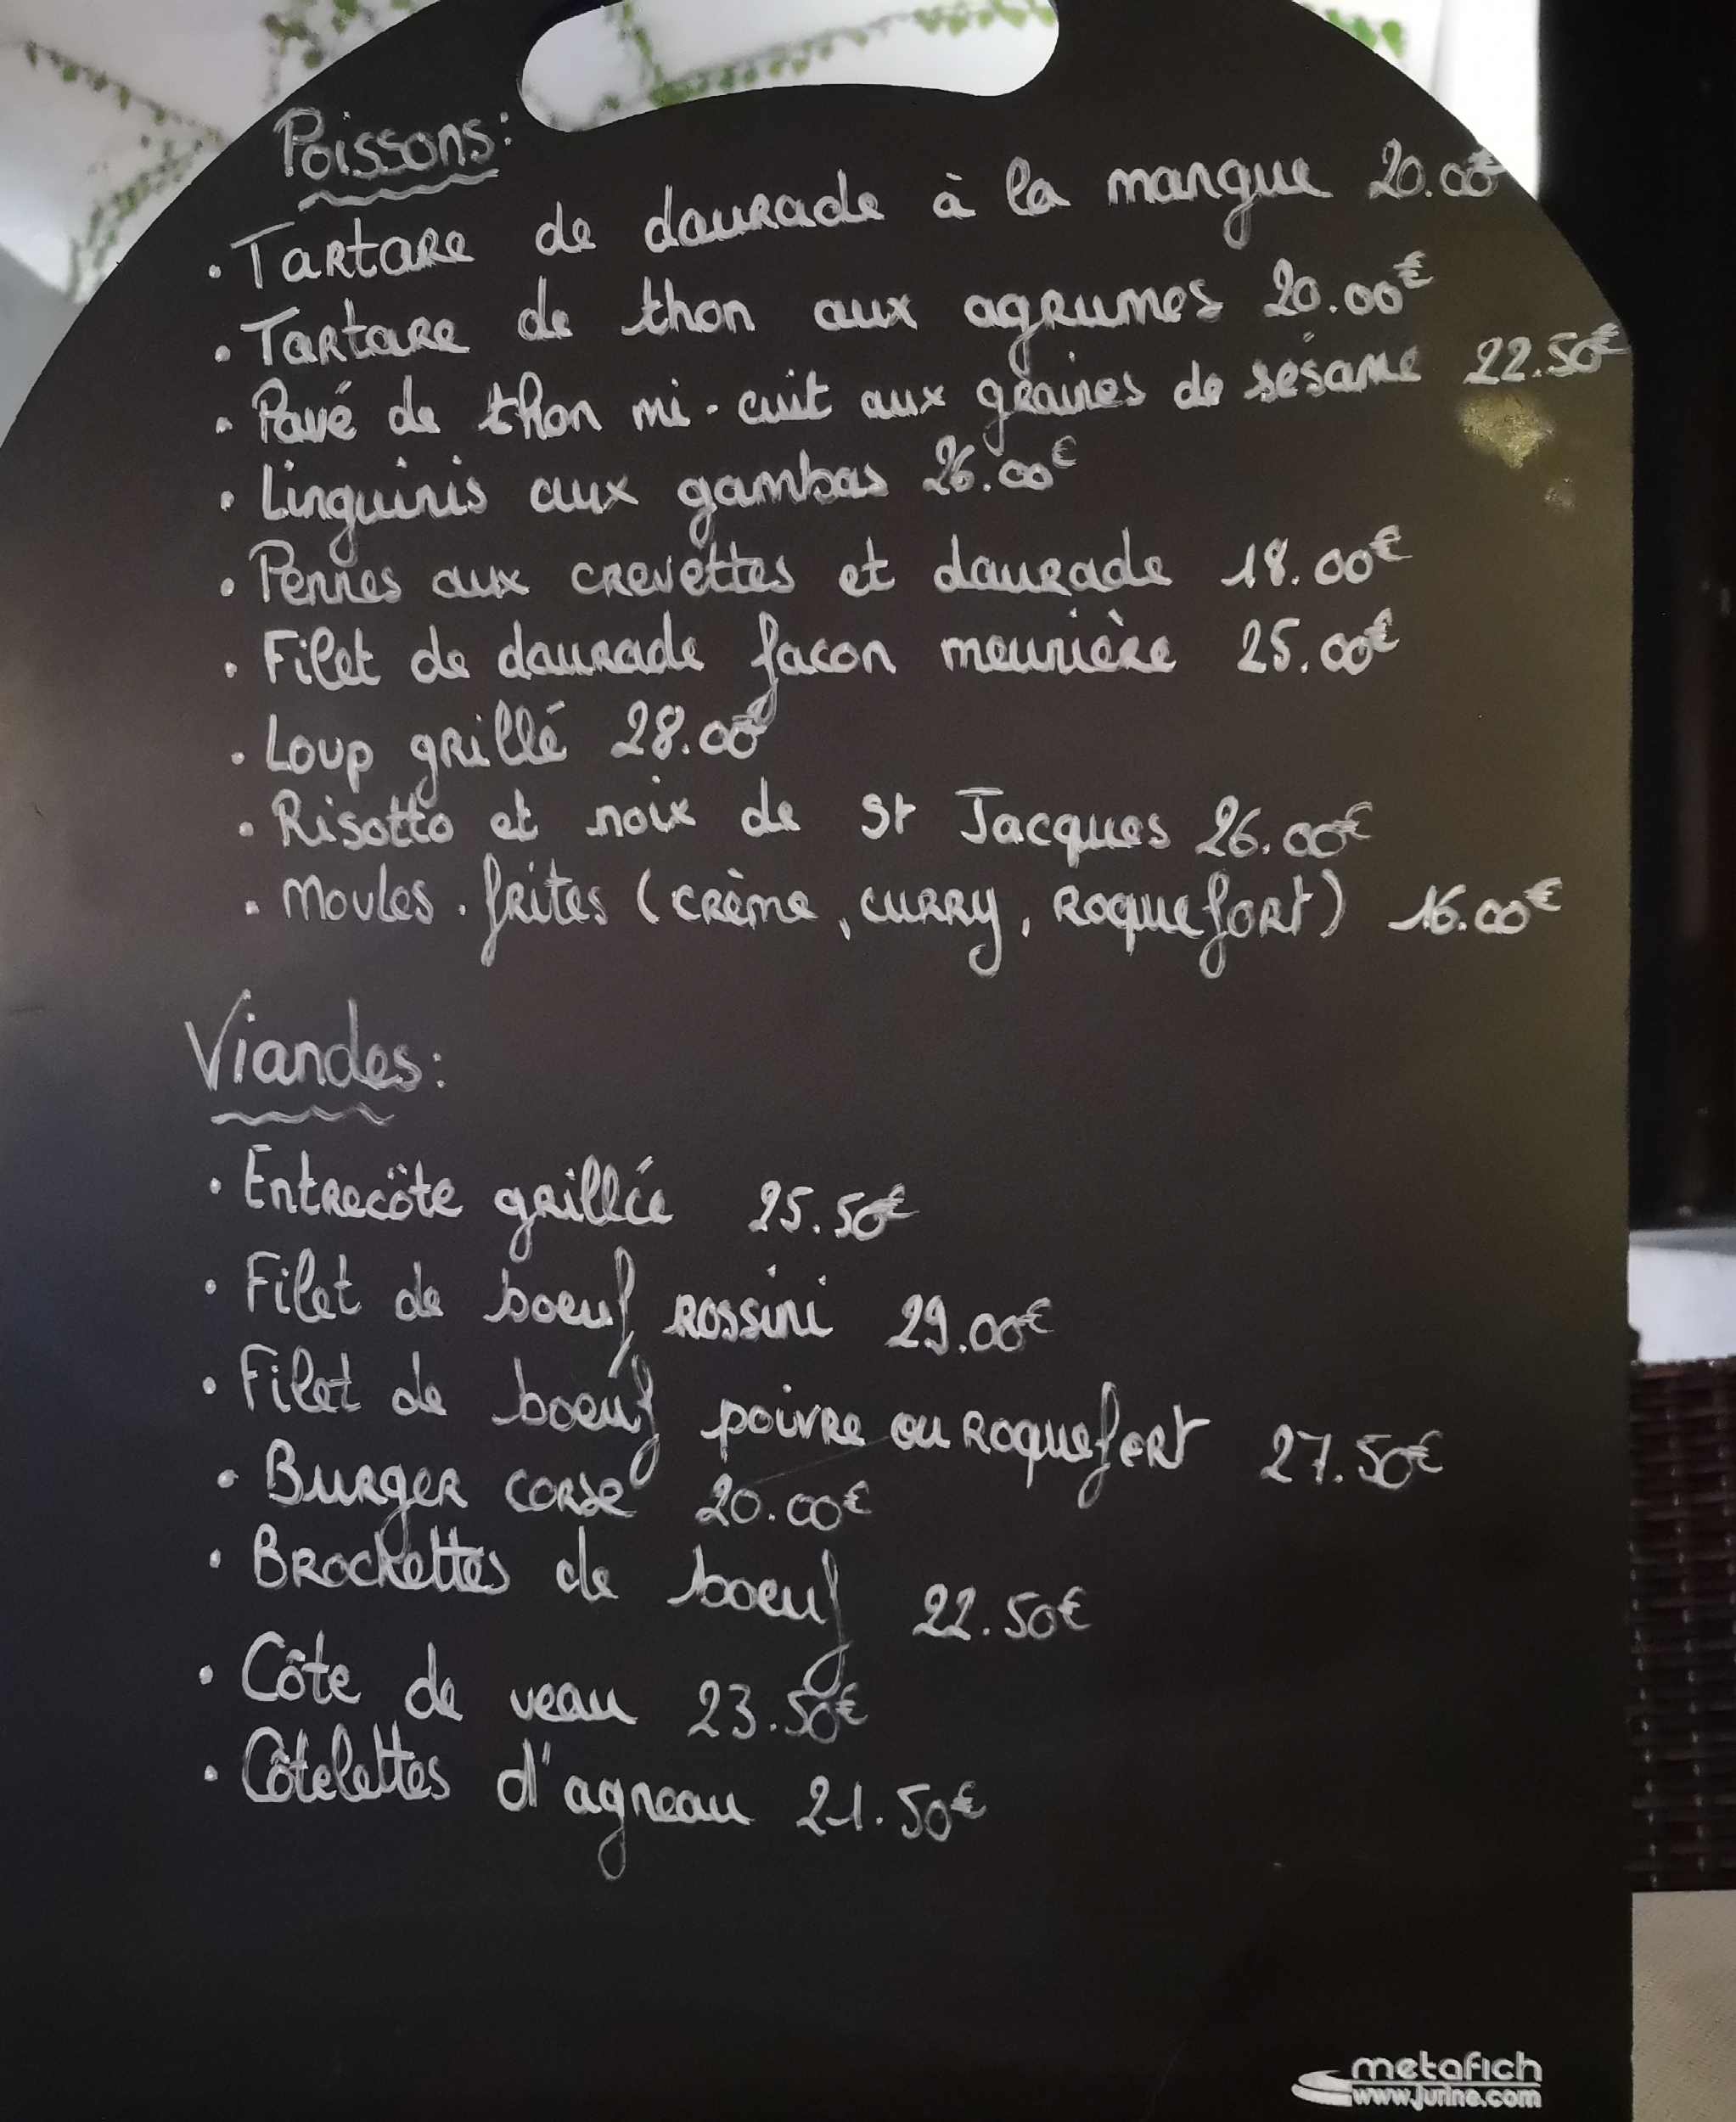 Poissons:
• Tartare de daurade à la mangue 20.00€
• Tartare de thon aux agrumes 20.00€
• Pavé de thon mi-cuit aux graines de sésame 22.50€
• Linguinis aux gambas 26.00€
• Pennes aux crevettes et daurade 18.00€
• Filet de daurade facon meunière 25.00€
• Loup grillé 28.00€
• Risotto et noix de St Jacques 26.00€
• Moules-frites (crème, curry, Roquefort) 16.00€
Viandes:
• Entrecôte grillée 25.50€
• Filet de boeuf rossini 29.00€
• Filet de boeuf poivre ou Roquefort 27.50€
• Burger corse 20.00€
• Brochettes de boeuf 22.50€
• Côte de veau 23.50€
• Côtelettes d'agneau 21.50€
metafich
www.jurine.com